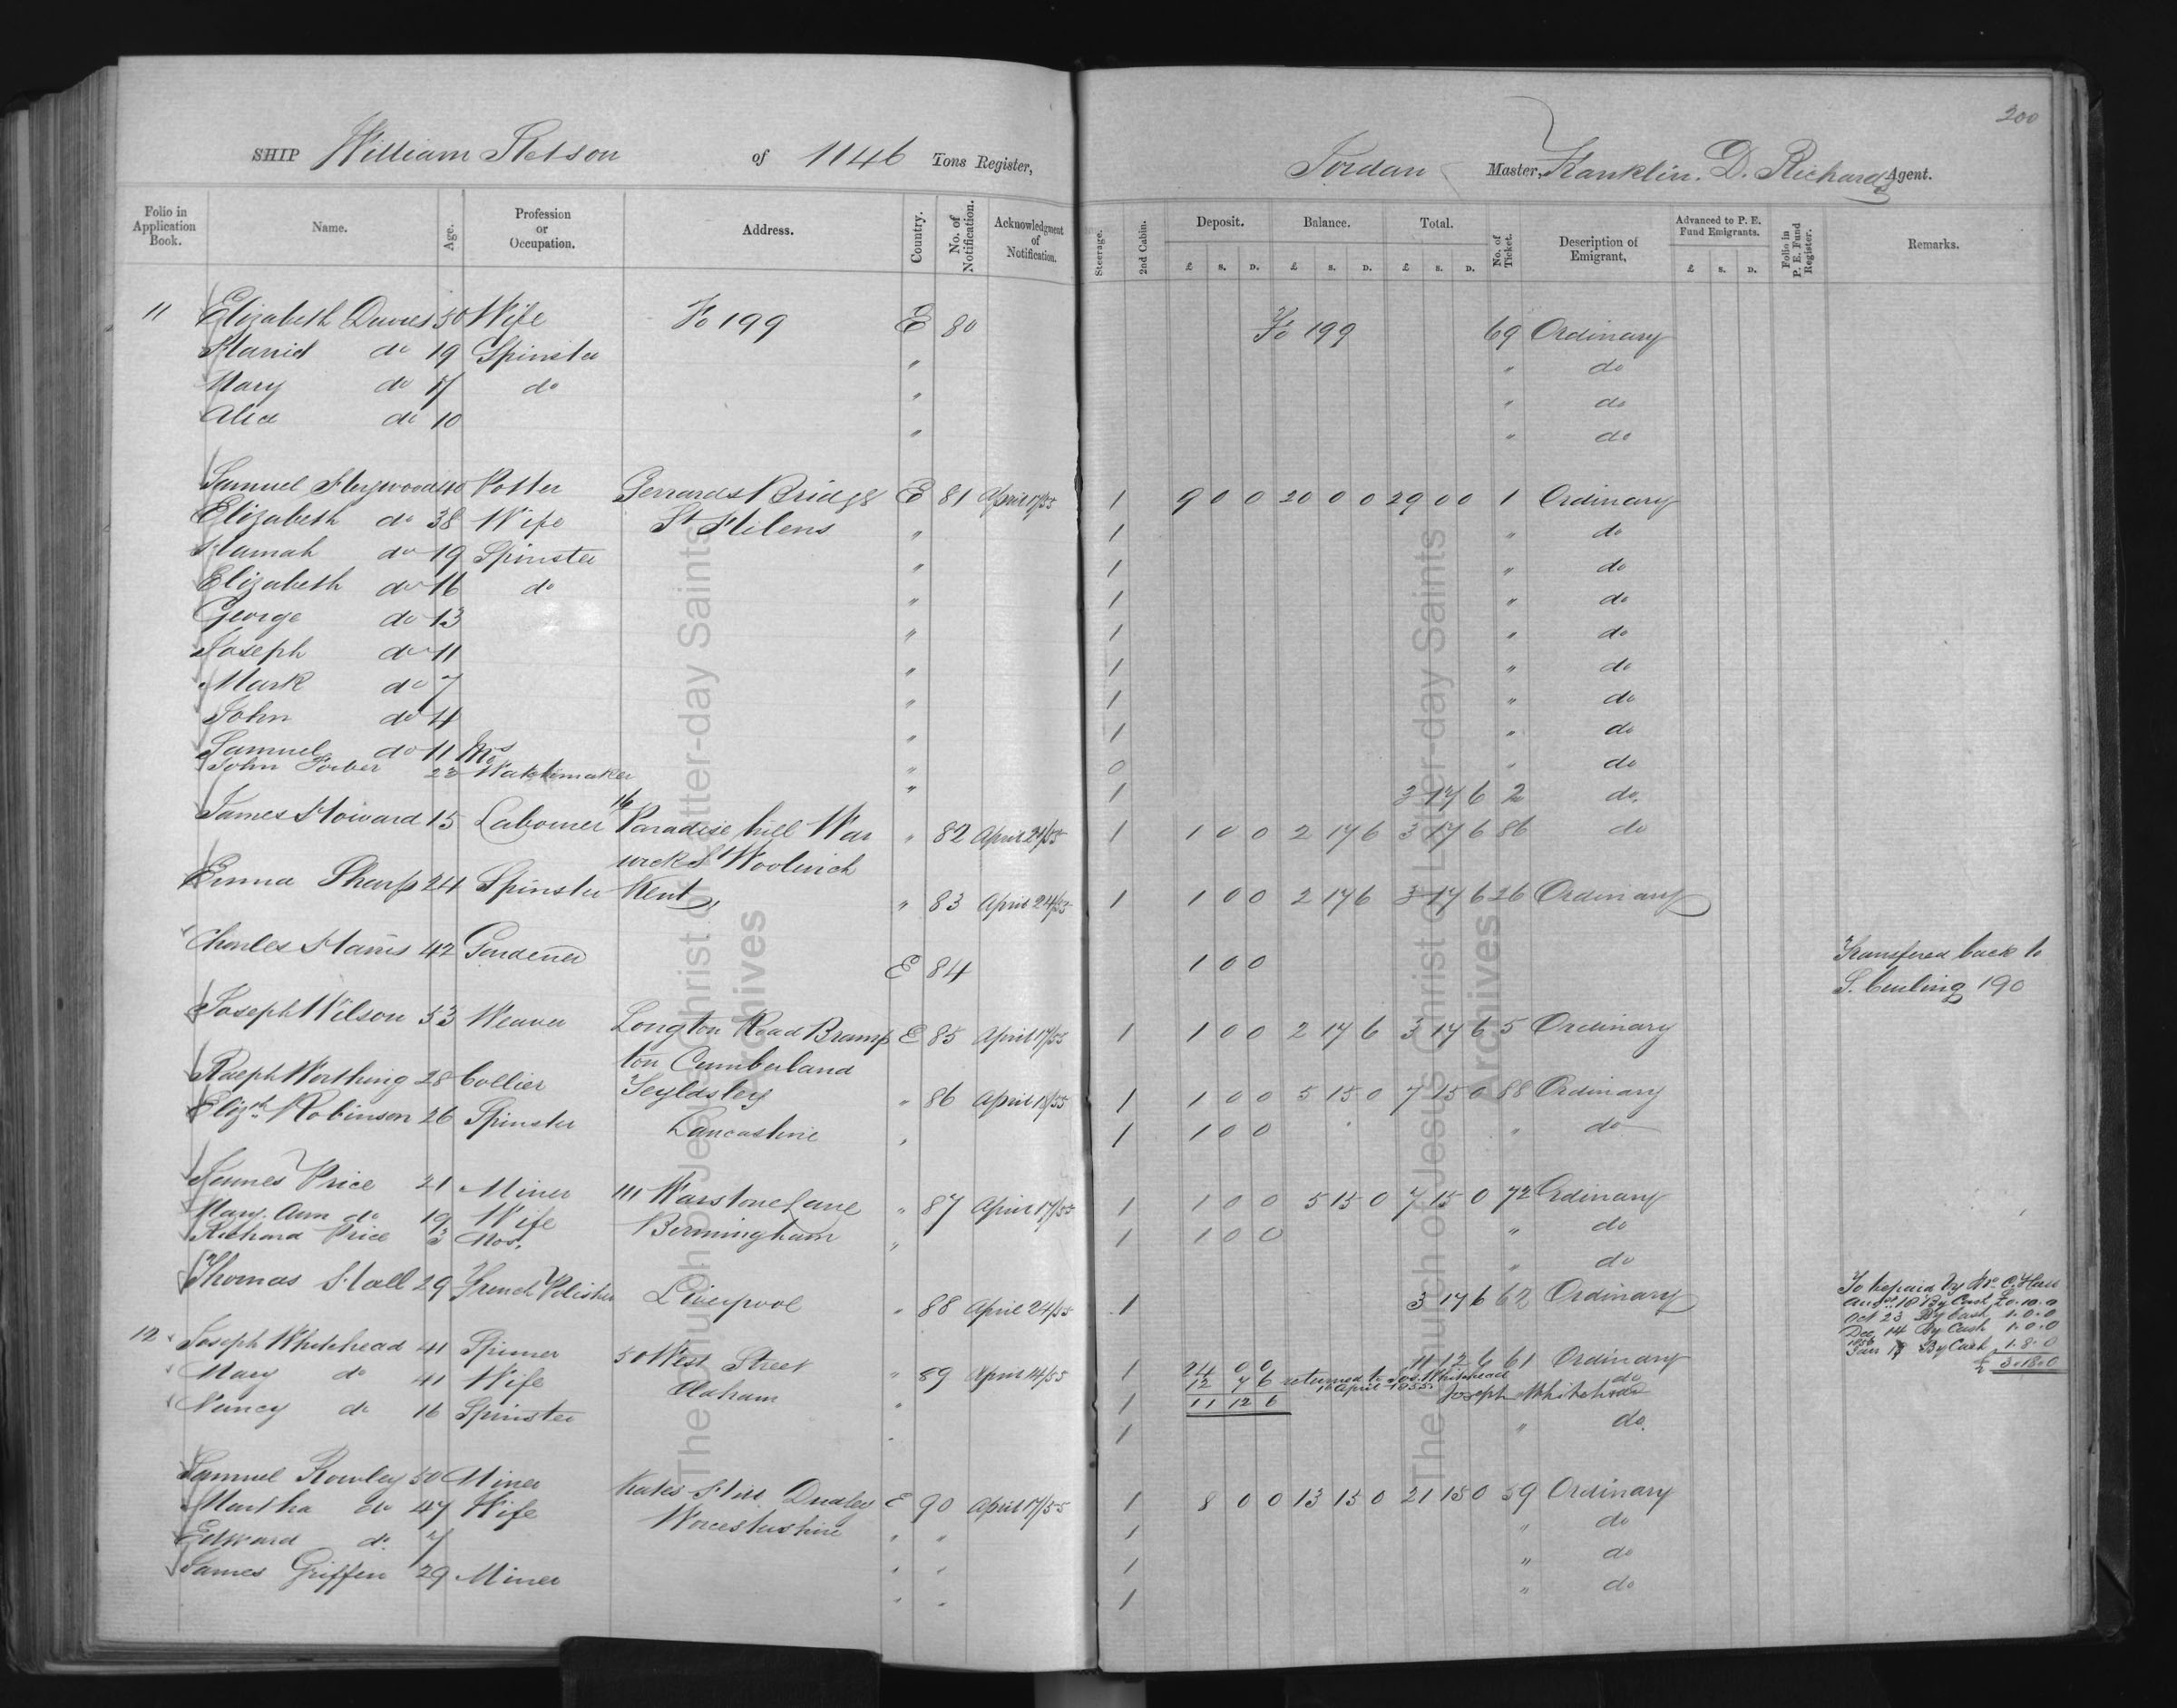 200
SHIP William Stetson of 1146 Tons Register, Jordan Master, Franklin. D. Richards Agent.
Folio in Application Book. Name. Age. Profession or Occupation. Address. Country. No. of Notification. Acknowledgment of Notification. Steerage. 2nd Cabin. Deposit. Balance. Total. No. of Ticket. Description of Emigrant, Advanced to P. E. Fund Emigrants. Folio in P. E. Fund Register. Remarks.
£ s. D. £ s. D. £ s. D. £ s. D.
11 Elizabeth Davies 50 Wife Fo 199 E 80 Fo 199 69 Ordinary
Harriet do 19 Spinster " " do
Mary do 17 do " " do
Alice do 10 " " do
Samuel Heywood 40 Potter Gerrards Bridge E 81 April 17/55 1 9 0 0 20 0 0 29 0 0 1 Ordinary
Elizabeth do 38 Wife St Helens " 1 " do
Hannah do 19 Spinster " 1 " do
Elizabeth do 16 do " 1 " do
George do 13 " 1 " do
Joseph do 11 " 1 " do
Mark do 7 " 1 " do
John do 4 " 1 " do
Samuel do 11 Mos " 0 " do
John Forber 23 Watchmaker " 1 3 17 6 2 do.
James Howard 15 Labourer 16 Paradise hill War " 82 April 24/55 1 1 0 0 2 17 6 3 17 6 86 do
wick St Woolwich
Emma Sharp 24 Spinster Kent, " 83 April 24/55 1 1 0 0 2 17 6 3 17 6 26 Ordinary
Charles Harris 42 Gardener E 84 1 0 0 Transfered back to
S. Curling 190
Joseph Wilson 53 Weaver Longton Road Bramp E 85 April 17/55 1 1 0 0 2 17 6 3 17 6 5 Ordinary
ton Cumberland
Ralph Worthing 28 Collier Teyldsley " 86 April 18/55 1 1 0 0 5 15 0 7 15 0 88 Ordinary
Elizth Robinson 26 Spinster Lancashire " 1 1 0 0 " do
James Price 21 Miner 111 Warstone Lane " 87 April 17/55 1 1 0 0 5 15 0 7 15 0 72 Ordinary
Mary. Ann do 19 Wife Birmingham " 1 1 0 0 " do
Richard Price 3 Mos. " do
Thomas Hall 29 French Polisher Liverpool " 88 April 24/55 1 3 17 6 62 Ordinary To be paid by Mr C. Hall
18 By Cash £0.10.0
Oct 23 By Cash 1.0.0
Dec 14 By Cash 1.0.0
1856 Jan 18 By Cash 1.8.0
£ 3.18.0
12 Joseph Whitehead 41 Spinner 50 West Street " 89 April 14/55 1 24 0 0 11 12 6 61 Ordinary
Mary do 41 Wife Oldham " 1 12 7 6 returned to Jos. Whitehead do
April 1855 Joseph Whitehead
11 12 6
Nancy do 16 Spinster 1 " do.
Samuel Rowley 50 Miner Kates Hill Dudley E 90 April 17/55 1 8 0 0 13 15 0 21 15 0 59 Ordinary
Martha do 47 Wife Worcestershire " " 1 " do
Edward do 7 " " 1 " do
James Griffin 29 Miner " " 1 " do
The Church of Jesus Christ of Latter-day Saints
Archives
The Church of Jesus Christ of Latter-day Saints
Archives